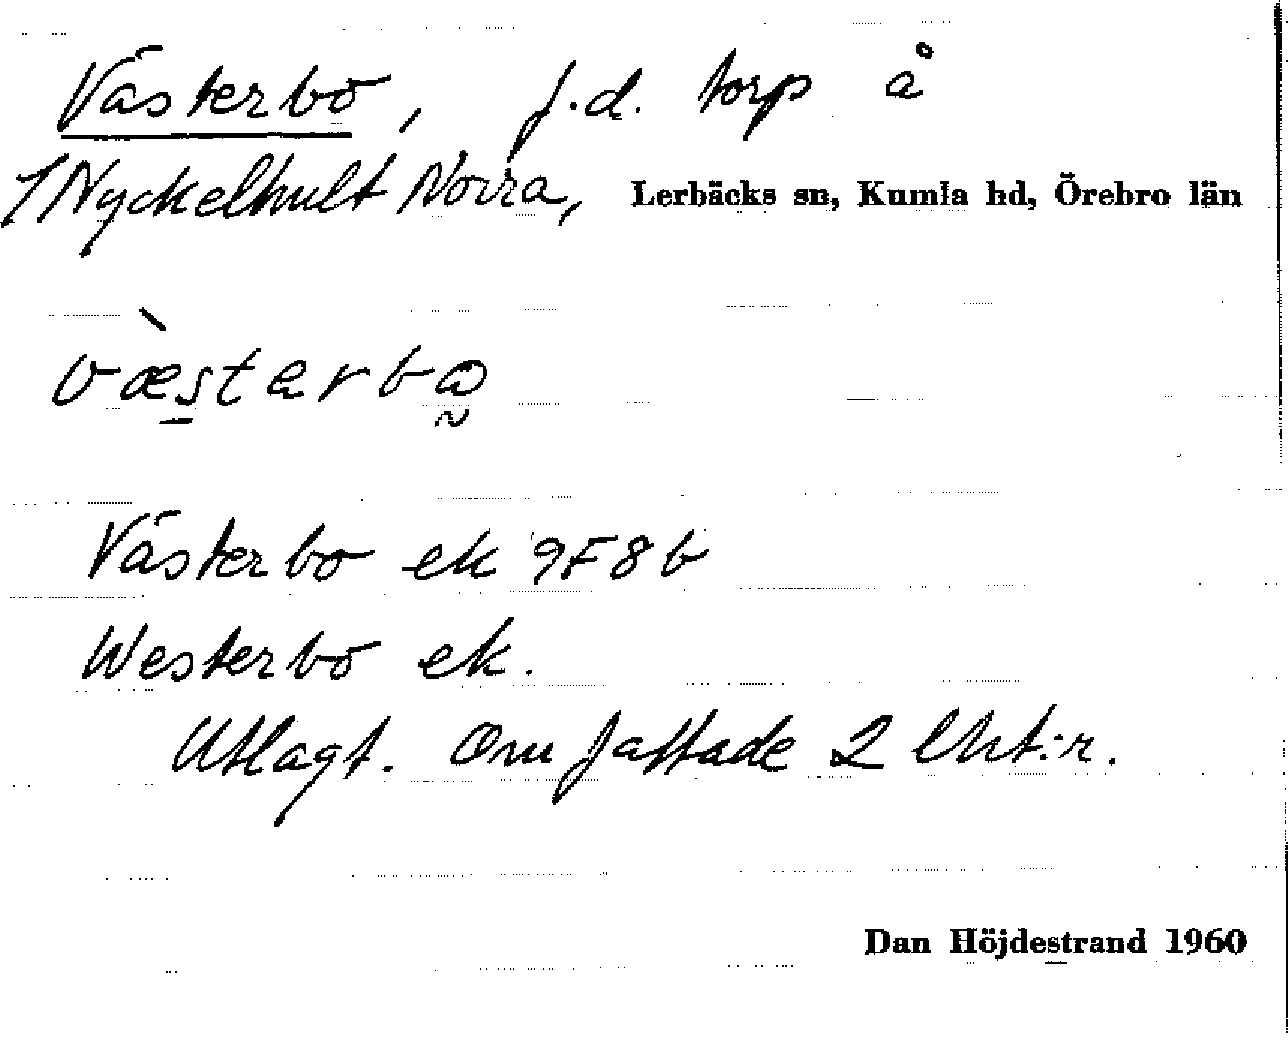 Västerbo, f.d. torp å
/Nyckelhult Norra, Lerbäcks sn, Kumla hd, Örebro län
væ̀starbo
Västerbo ek 9F8b
Westerbo ek.
Utlagt. Omfattade 2 lht:r.
Dan Höjdestrand 1960